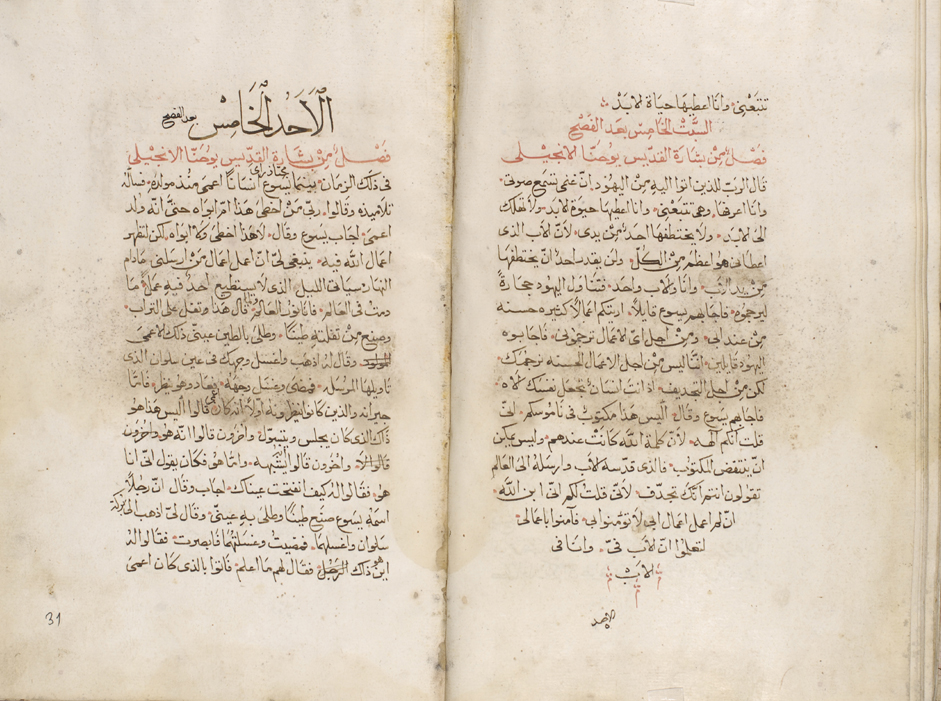 تتبعني وانا اعطيها حياة لابد
السبت الخامس بعد الفصح
فصل من بشارة القديس يوحنا الانجيلي
قال الرب للذين اتوا اليه من اليهود ان غنمي تسمع صوتي
وانا اعرفها وهي تتبعني وانا اعطيها حيوة لابد ولا تهلك
الى لابد ولا يختطفها احد من يدي لان لأب الذي
اعطاني هو اعظم من الكل ولن يقدر احد ان يختطفها
من يد الأب وانا ولاب واحد فتناول اليهود حجارة
ليرجموه فاجابهم يسوع قايلا اريتكم اعمالا كثيره حسنه
من عند ابي ومن اجل اي لاعمال ترجموني فاجابوه
اليهود قايلين اننا ليس من اجل الاعمال الحسنه نرجمك
لكن من اجل التجديف اذ انت انسان تجعل نفسك لاه
فاجابهم يسوع وقال اليس هذا مكتوب في ناموسكم اني
قلت انكم آلهه لان كلمة الله كانت عندهم وليس يمكن
ان ينتقض المكتوب فالذي قدسه لاب وارسله الى العالم
تقولون انتم انك تجدف لاني قلت لكم اني ابن الله
ان لم اعمل اعمال ابي لا تؤمنوا بي فآمنوا باعمالي
لتعلموا ان لاب في وانا في
لاب
الاحد
الاحد الخامس بعد الفصح
فصل من بشارة القديس يوحنا الانجيلي
في ذلك الزمان بينما يسوع مجتاز راى انسانا اعمى منذ مولده فساله
تلاميذه وقالوا ربي من اخطى هذا ام ابواه حتى انه ولد
اعمى اجاب يسوع وقال لا هذا اخطى ولا ابواه لكن لتظهر
اعمال الله فيه ينبغي لي ان اعمل اعمال من ارسلني مادام
النهار سياتي الليل الذي لا يستطيع احد فيه عملا ما
دمت في العالم فانا نور العالم قال هذا وتفل على التراب
وصنع من تفلته طينا وطلى بالطين عيني ذلك لاعمى
المولود وقال له اذهب واغسل وجهك في عين سلوان الذي
تاويلها المرسله فمضى وغسل وجهه وعاد وهو ينظر فاما
جيرانه والذين كانوا ينظرونه اولا انه كان اعمى قالوا اليس هذا هو
ذاك الذي كان يجلس ويتسول واخرون قالوا انه هو واخرون
قالوا لا واخرون قالوا يشبهه واما هو فكان يقول اني انا
هو فقالوا له كيف انفتحت عيناك اجاب وقال ان رجلا
اسمه يسوع صنع طينا وطلى به عيني وقال لي اذهب الى بركة
سلوان واغسلهما فمضيت وغسلتهما فابصرت فقالوا له
اين هو ذاك الرجل فقال لهم ما اعلم فاتوا بالذي كان اعمى
31